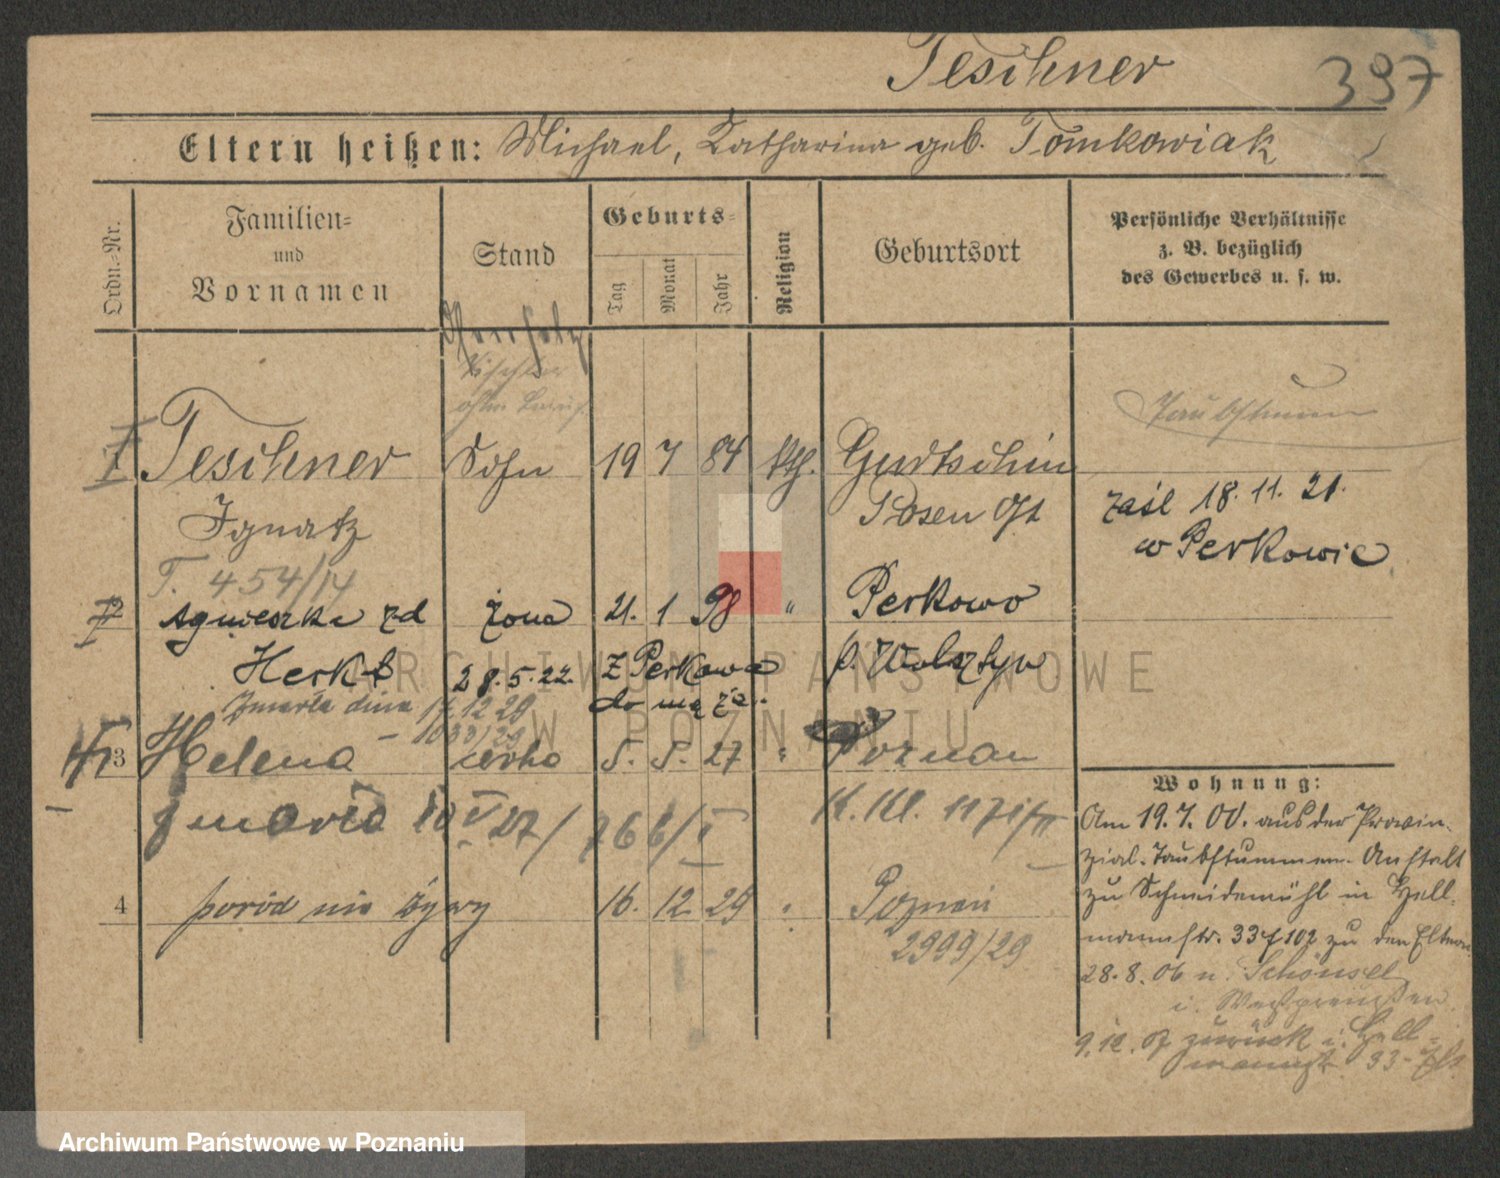 Teschner 397
Eltern heißen: Michael, Katharina geb. Tomkowiak
Ordn.-Nr.
Familien-
und
Vornamen
Stand
Geburts-
Tag
Monat
Jahr
Religion
Geburtsort
Persönliche Verhältnisse
z. B. bezüglich
des Gewerbes u. s. w.
Tischler
Taubstumm
1 Teschner Sohn 19 7 84 kth. Gurtschin
Ignatz Posen Ost
zaśl 18. 11. 21.
w Perkowie
T. 454/14
2 Agnieszka zd żona 21. 1 98 " Perkowo
Herkt 28.5.22. z Perkowa p. Wolsztyn
Zmarła dnia 17.12.29 do męża
1033/29
3 Helena córka 5. 5. 27 " Poznań
zmarła 10 V 27/ 766/I
4 poród nie żywy 16. 12 29 " Poznań
2999/29
Wohnung:
Am 19.7.00. aus der Provin-
zial-Taubstummen-Anstalt
zu Schneidemühl in Hell-
mannstr. 33 zu den Eltern
28.8.06 n. Schönsee
i. Westpreußen
9.12.07 zurück i. Hell-
mannstr. 33
ARCHIWUM PAŃSTWOWE
W POZNANIU
Archiwum Państwowe w Poznaniu